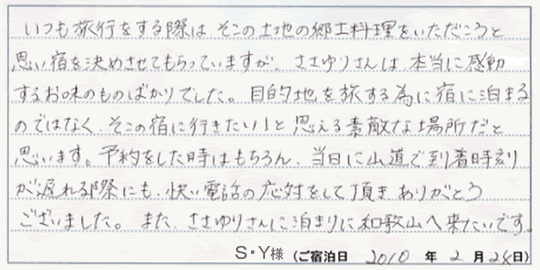 いつも旅行をする際は、そこの土地の郷土料理をいただこうと
思い宿を決めさせてもらっていますが、ささゆりさんは、本当に感動
するお味のものばかりでした。目的地を旅する為に宿に泊まる
のではなく、そこの宿に行きたい!と思える素敵な場所だと
思います。予約をした時はもちろん、当日に山道で到着時刻
が遅れる際にも、快い電話の応対をして頂きありがとう
ございました。また、ささゆりさんに泊まりに和歌山へ来たいです。
S・Y様 (ご宿泊日 2010 年 2 月 28日)